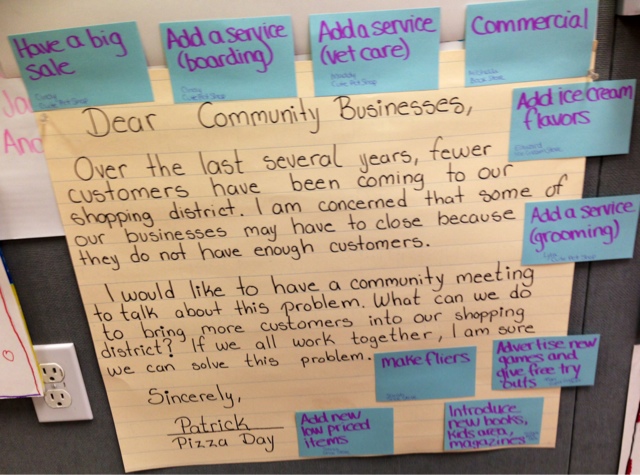 Have a big
sale
Cute Pet Shop
Add a service
(boarding)
Cute Pet Shop
Add a service
(vet care)
Cute Pet Shop
Commercial
Book Store
Add ice cream
flavors
Add a service
(grooming)
Cute Pet Shop
Dear Community Businesses,
Over the last several years, fewer
customers have been coming to our
shopping district. I am concerned that some of
our businesses may have to close because
they do not have enough customers.
I would like to have a community meeting
to talk about this problem. What can we do
to bring more customers into our shopping
district? If we all work together, I am sure
we can solve this problem.
Sincerely,
Patrick
Pizza Day
make fliers
Advertise new
games and
give free try
outs
Add new
low priced
items
Introduce
new books,
kids area,
magazines